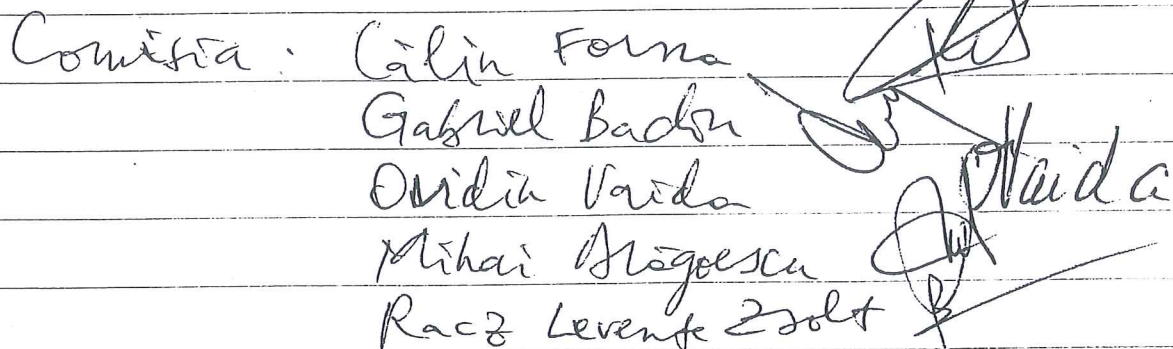 Comisia : Călin Forna
Gabriel Badin
Ovidiu Vaida OVaida
Mihai Drăgoescu
Racz Levente Zsolt